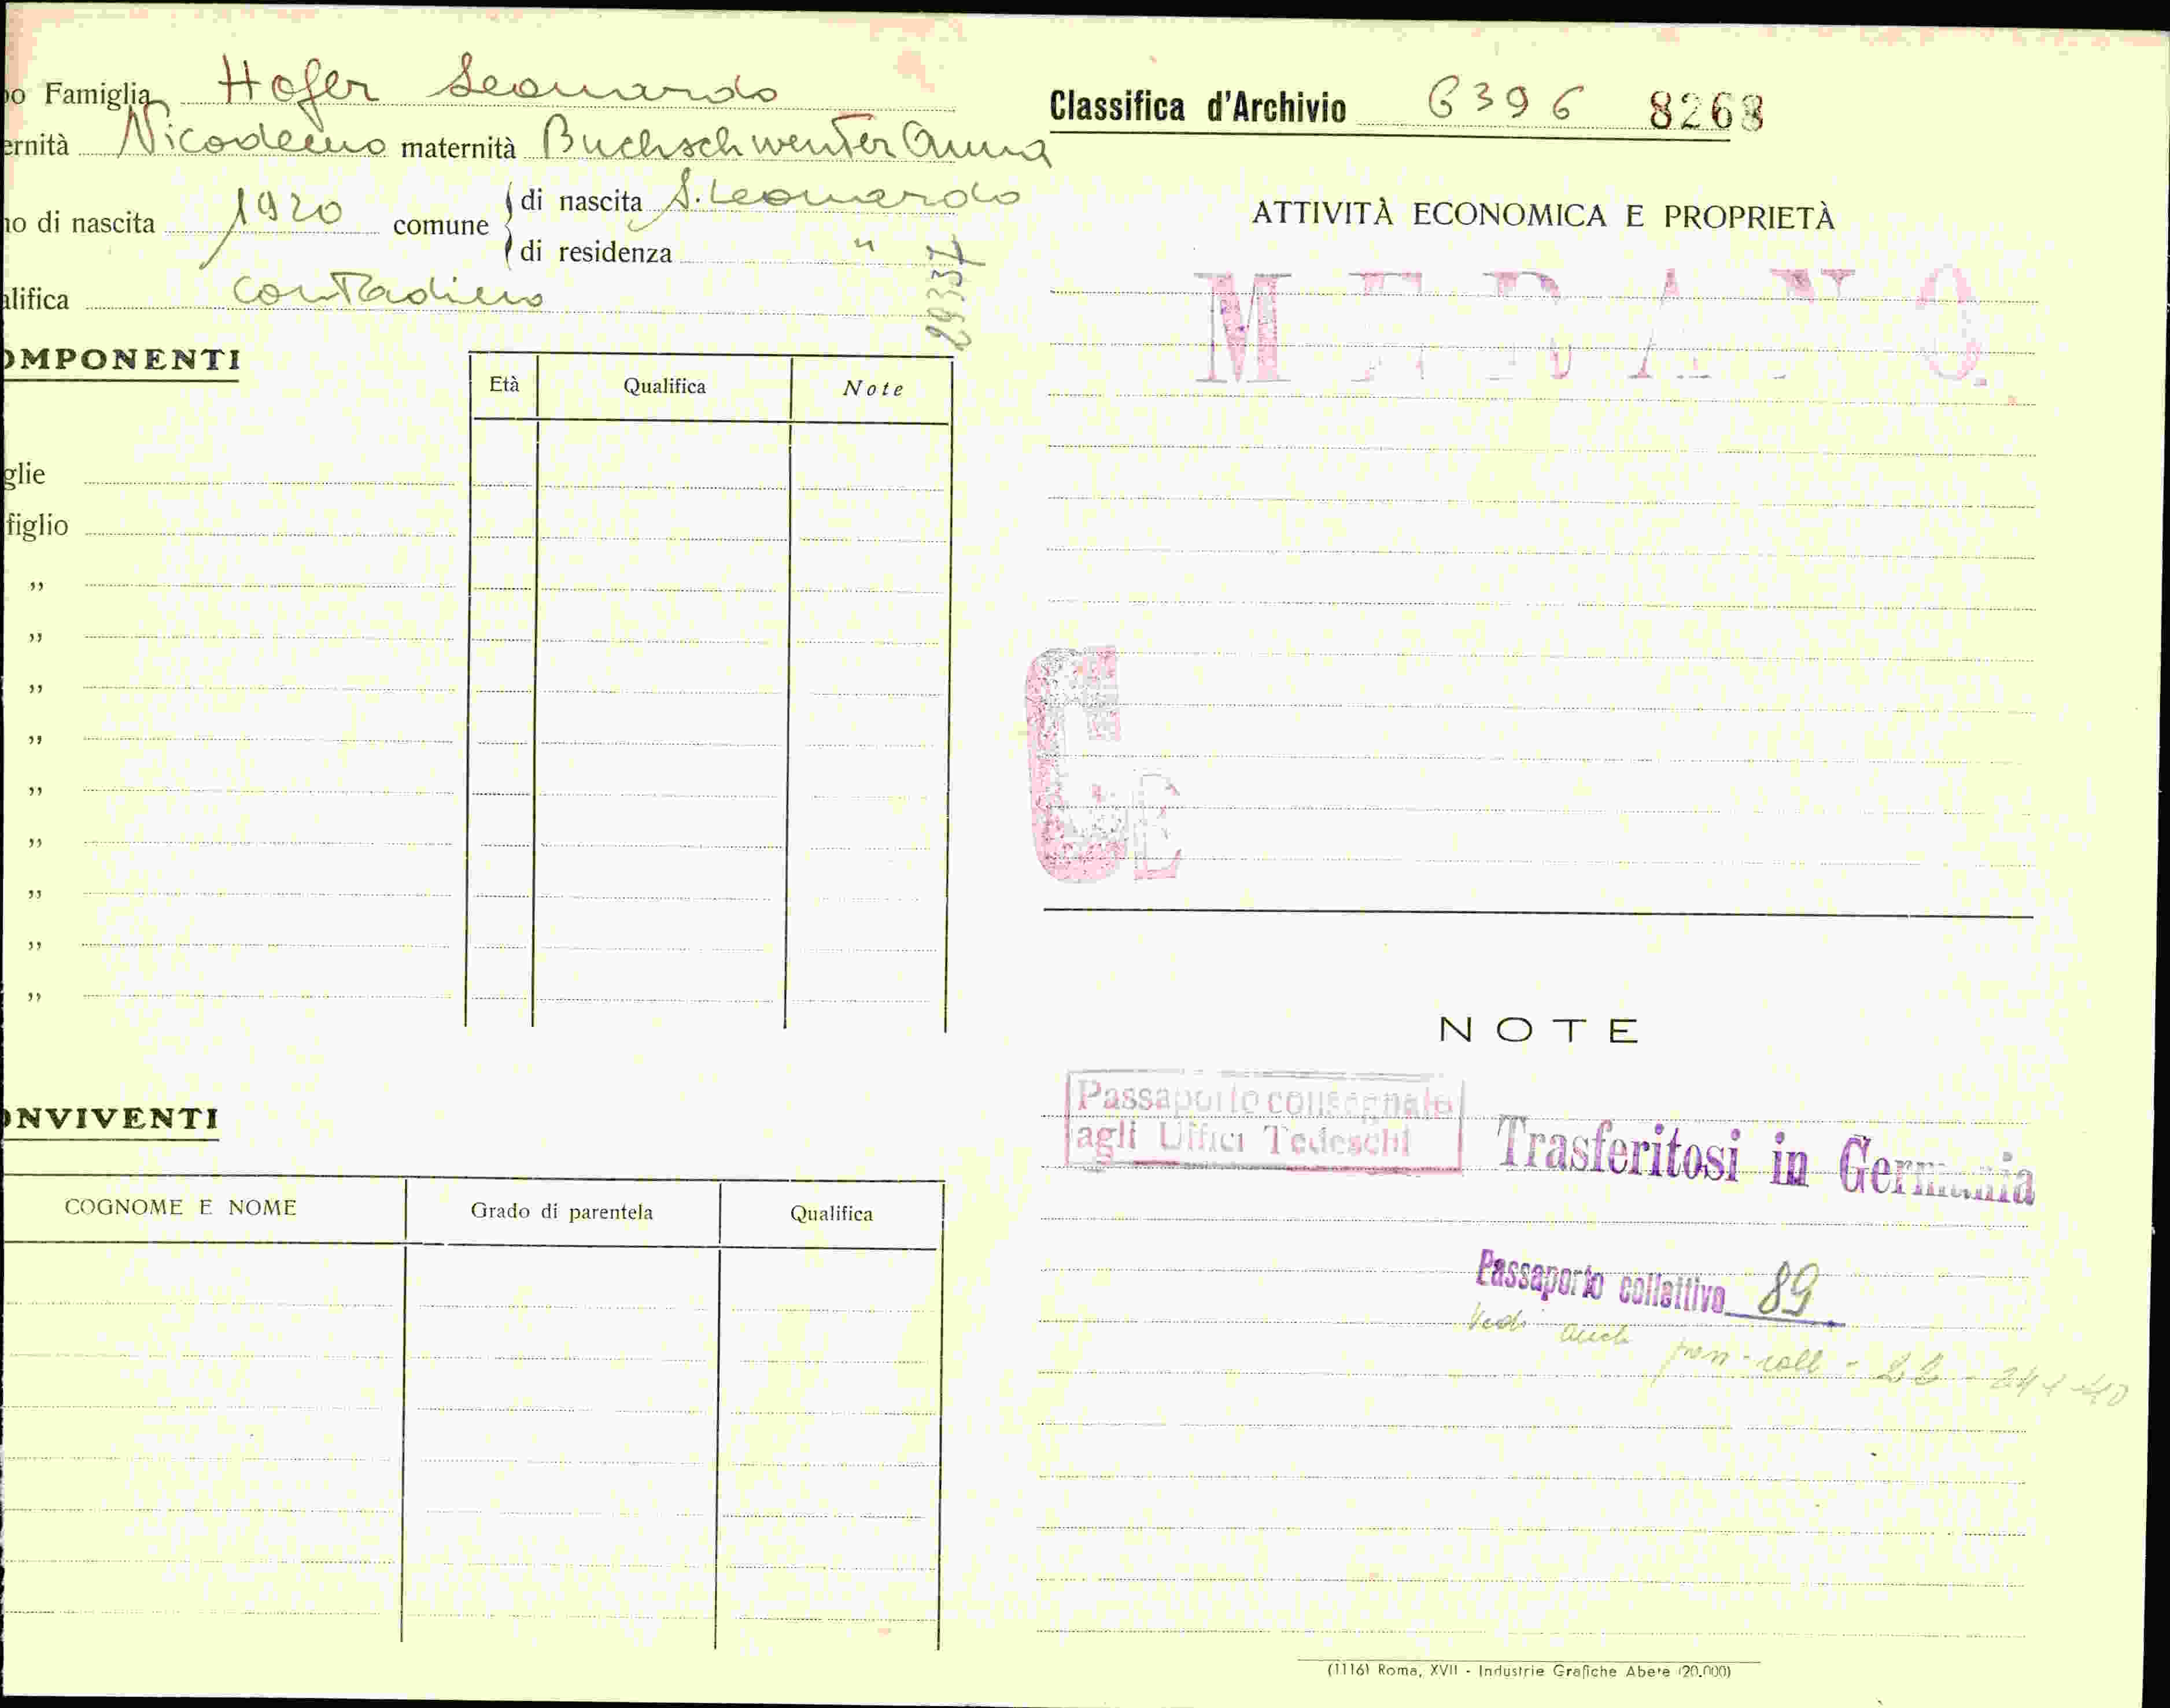 o Famiglia Hofer Leonardo
ernità Nicodemo maternità Buchschwenter Anna
no di nascita 1920 comune di nascita S. Leonardo
di residenza "
alifica contadino
29337
OMPONENTI
Età Qualifica Note
glie
figlio
"
"
"
"
"
"
"
"
"
ONVIVENTI
COGNOME E NOME Grado di parentela Qualifica
Classifica d'Archivio 6396 8268
ATTIVITÀ ECONOMICA E PROPRIETÀ
MERANO
CE
NOTE
Passaporto consegnato
agli Uffici Tedeschi
Trasferitosi in Germania
Passaporto collettivo 89
Vedi anch
(1116) Roma, XVII - Industrie Grafiche Abete (20.000)